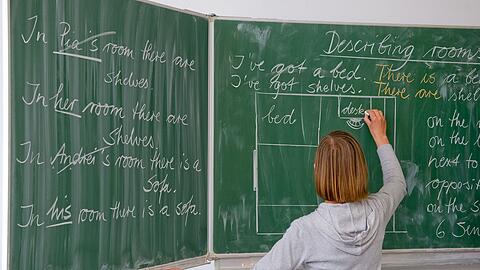 In Pia's room there are
shelves.
In her room there are
shelves.
In Andrei's room there is a
sofa.
In his room there is a sofa.
Describing rooms
I've got a bed. There is a be
I've got shelves. There are shel
bed
desk
on th
on the
next to
opposi
on the s
6 Sen